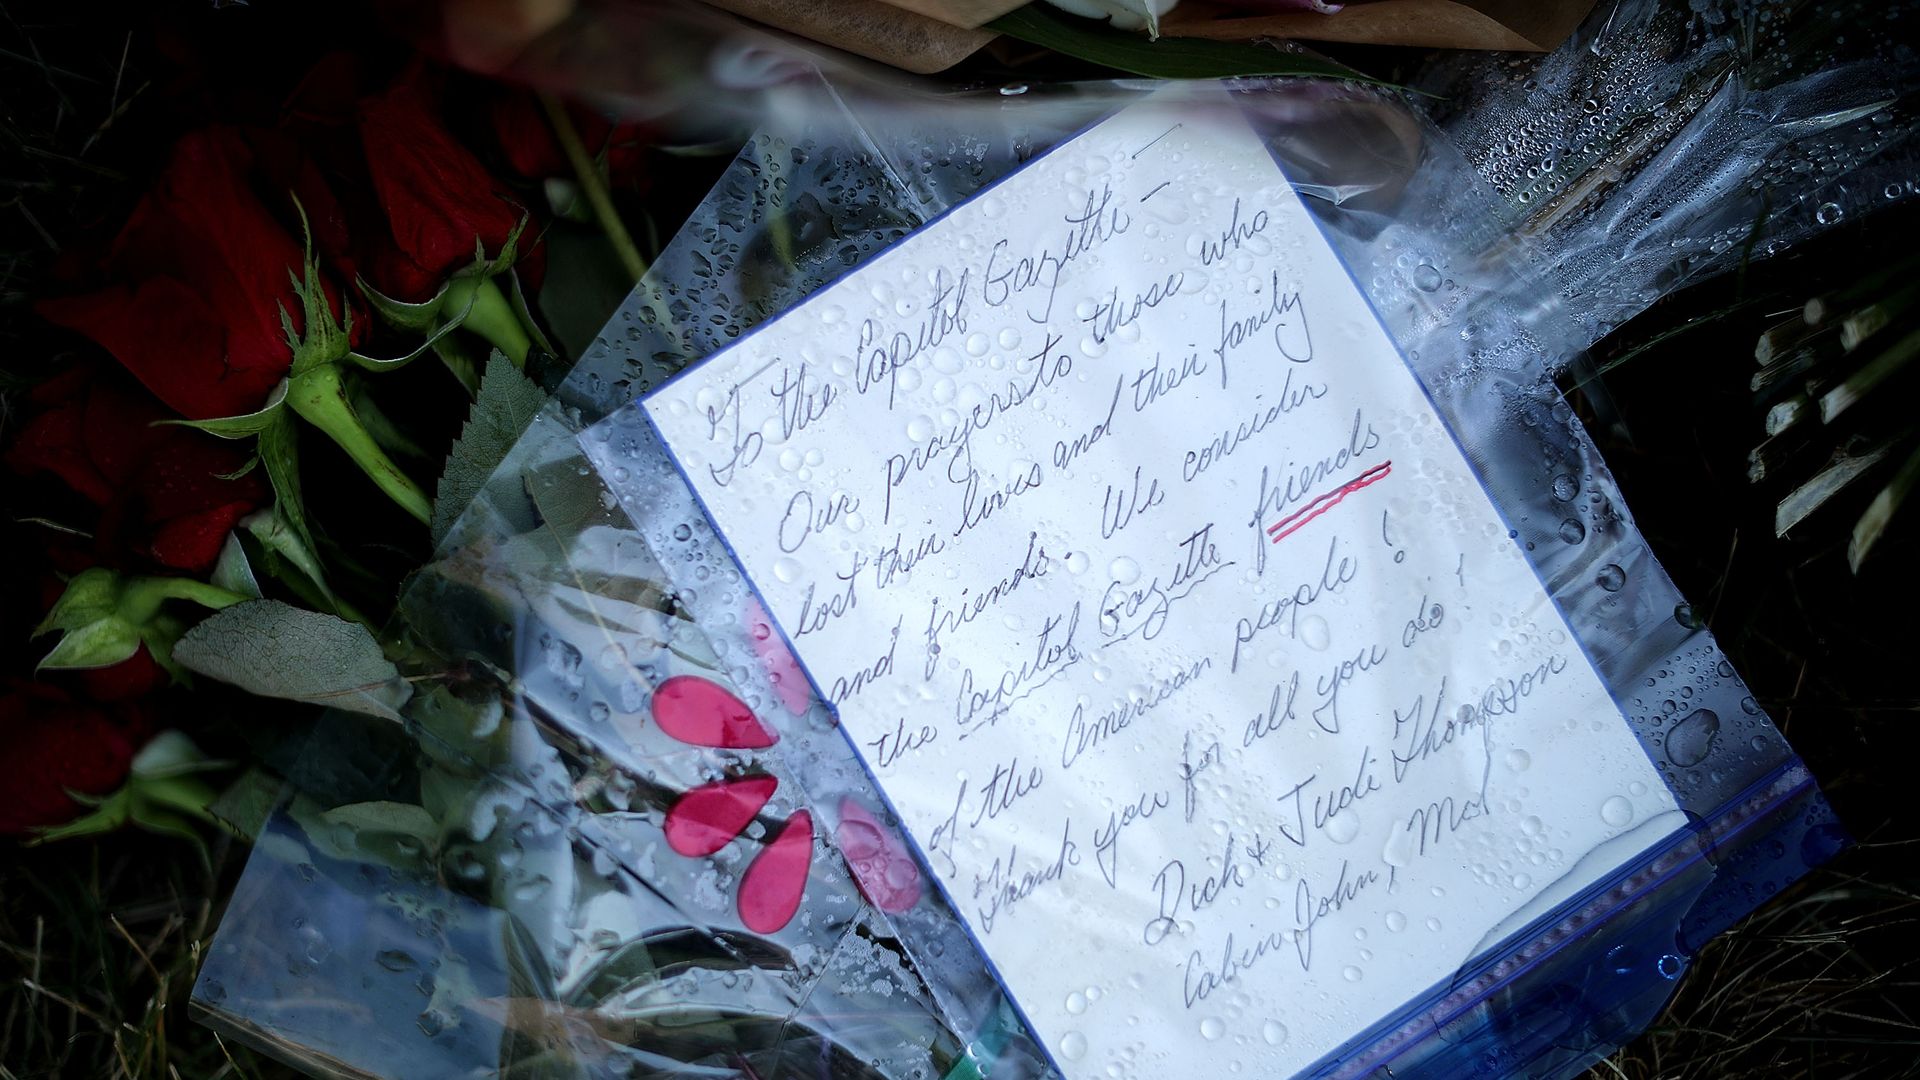 To the Capitol Gazette –
Our prayers to those who
lost their lives and their family
and friends. We consider
the Capitol Gazette friends
of the American people!
Thank you for all you do!
Dick & Judi Thompson
Cabin John, Md